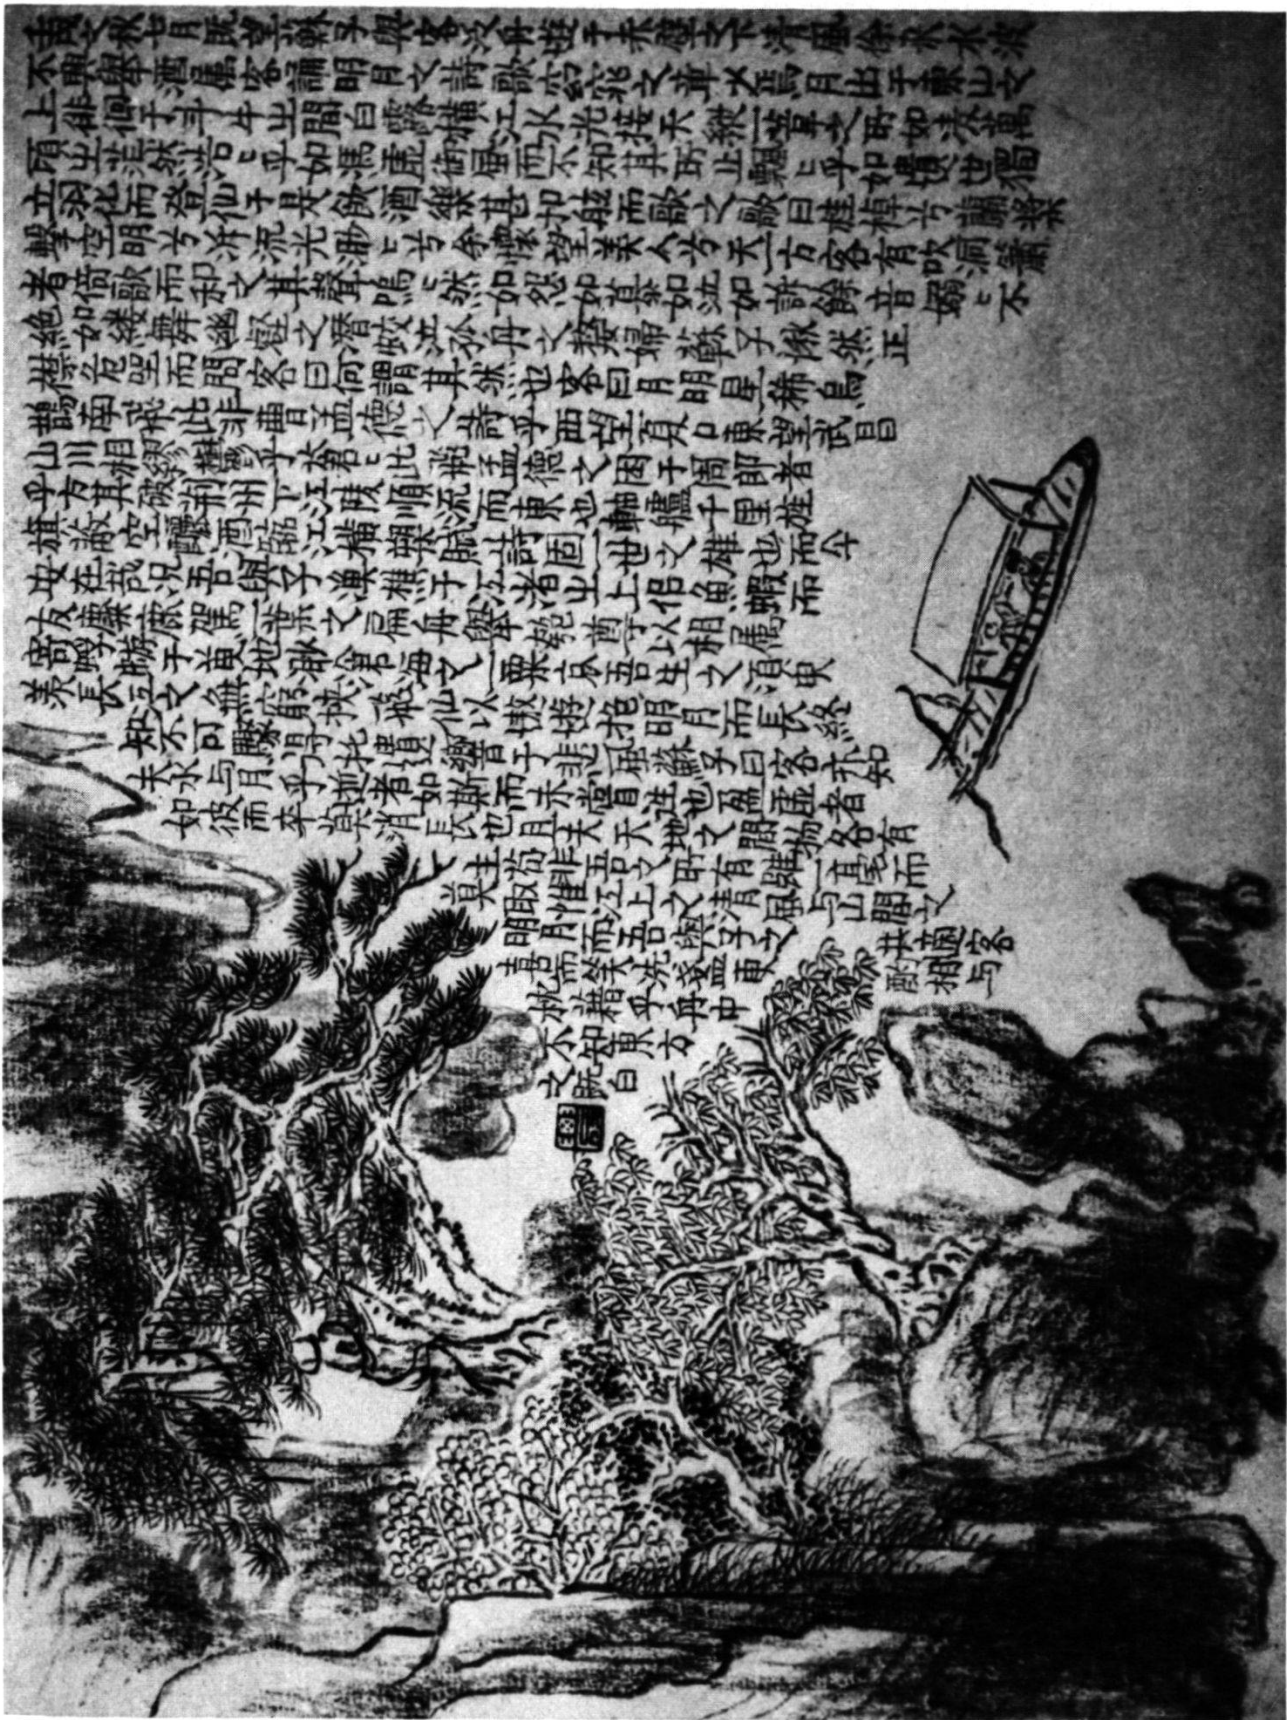 壬戌之秋七月既望蘇子與客泛舟遊于赤壁之下清風徐來水波
不興舉酒屬客誦明月之詩歌窈窕之章少焉月出于東山之
上徘徊于斗牛之間白露橫江水光接天縱一葦之所如凌萬
頃之茫然浩〻乎如馮虛御風而不知其所止飄〻乎如遺世獨
立羽化而登仙于是飲酒樂甚扣舷而歌之歌曰桂棹兮蘭槳
擊空明兮泝流光渺〻兮余懷望美人兮天一方客有吹洞簫
者倚歌而和之其聲嗚〻然如怨如慕如泣如訴餘音嫋〻不
絕如縷舞幽壑之潛蛟泣孤舟之嫠婦蘇子愀然正
襟危坐而問客曰何謂其然也客曰月明星稀烏
鵲南飛此非曹孟德之詩乎西望夏口東望武昌
山川相繆鬱乎蒼〻此非孟德之困于周郎者
乎方其破荊州下江陵順流而東也舳艫千里旌
旗蔽空釃酒臨江橫槊賦詩固一世之雄也而今
安在哉況吾與子漁樵于江渚之上侶魚蝦而
友麋鹿駕一葉之扁舟舉匏尊以相屬
寄蜉蝣于天地渺滄海之一粟哀吾生之須臾
羨長江之無窮挾飛仙以遨遊抱明月而長終
知不可乎驟得託遺響于悲風蘇子曰客亦知
夫水与月乎逝者如斯而未嘗往也盈虛者
如彼而卒莫消長也
且夫天地之間物各有
主苟非吾之所有雖一毫而
莫取惟江上之清風与山間之
明月而吾與子之所共適
客喜而笑洗盞更酌
相与枕藉乎舟中
不知東方
之既白